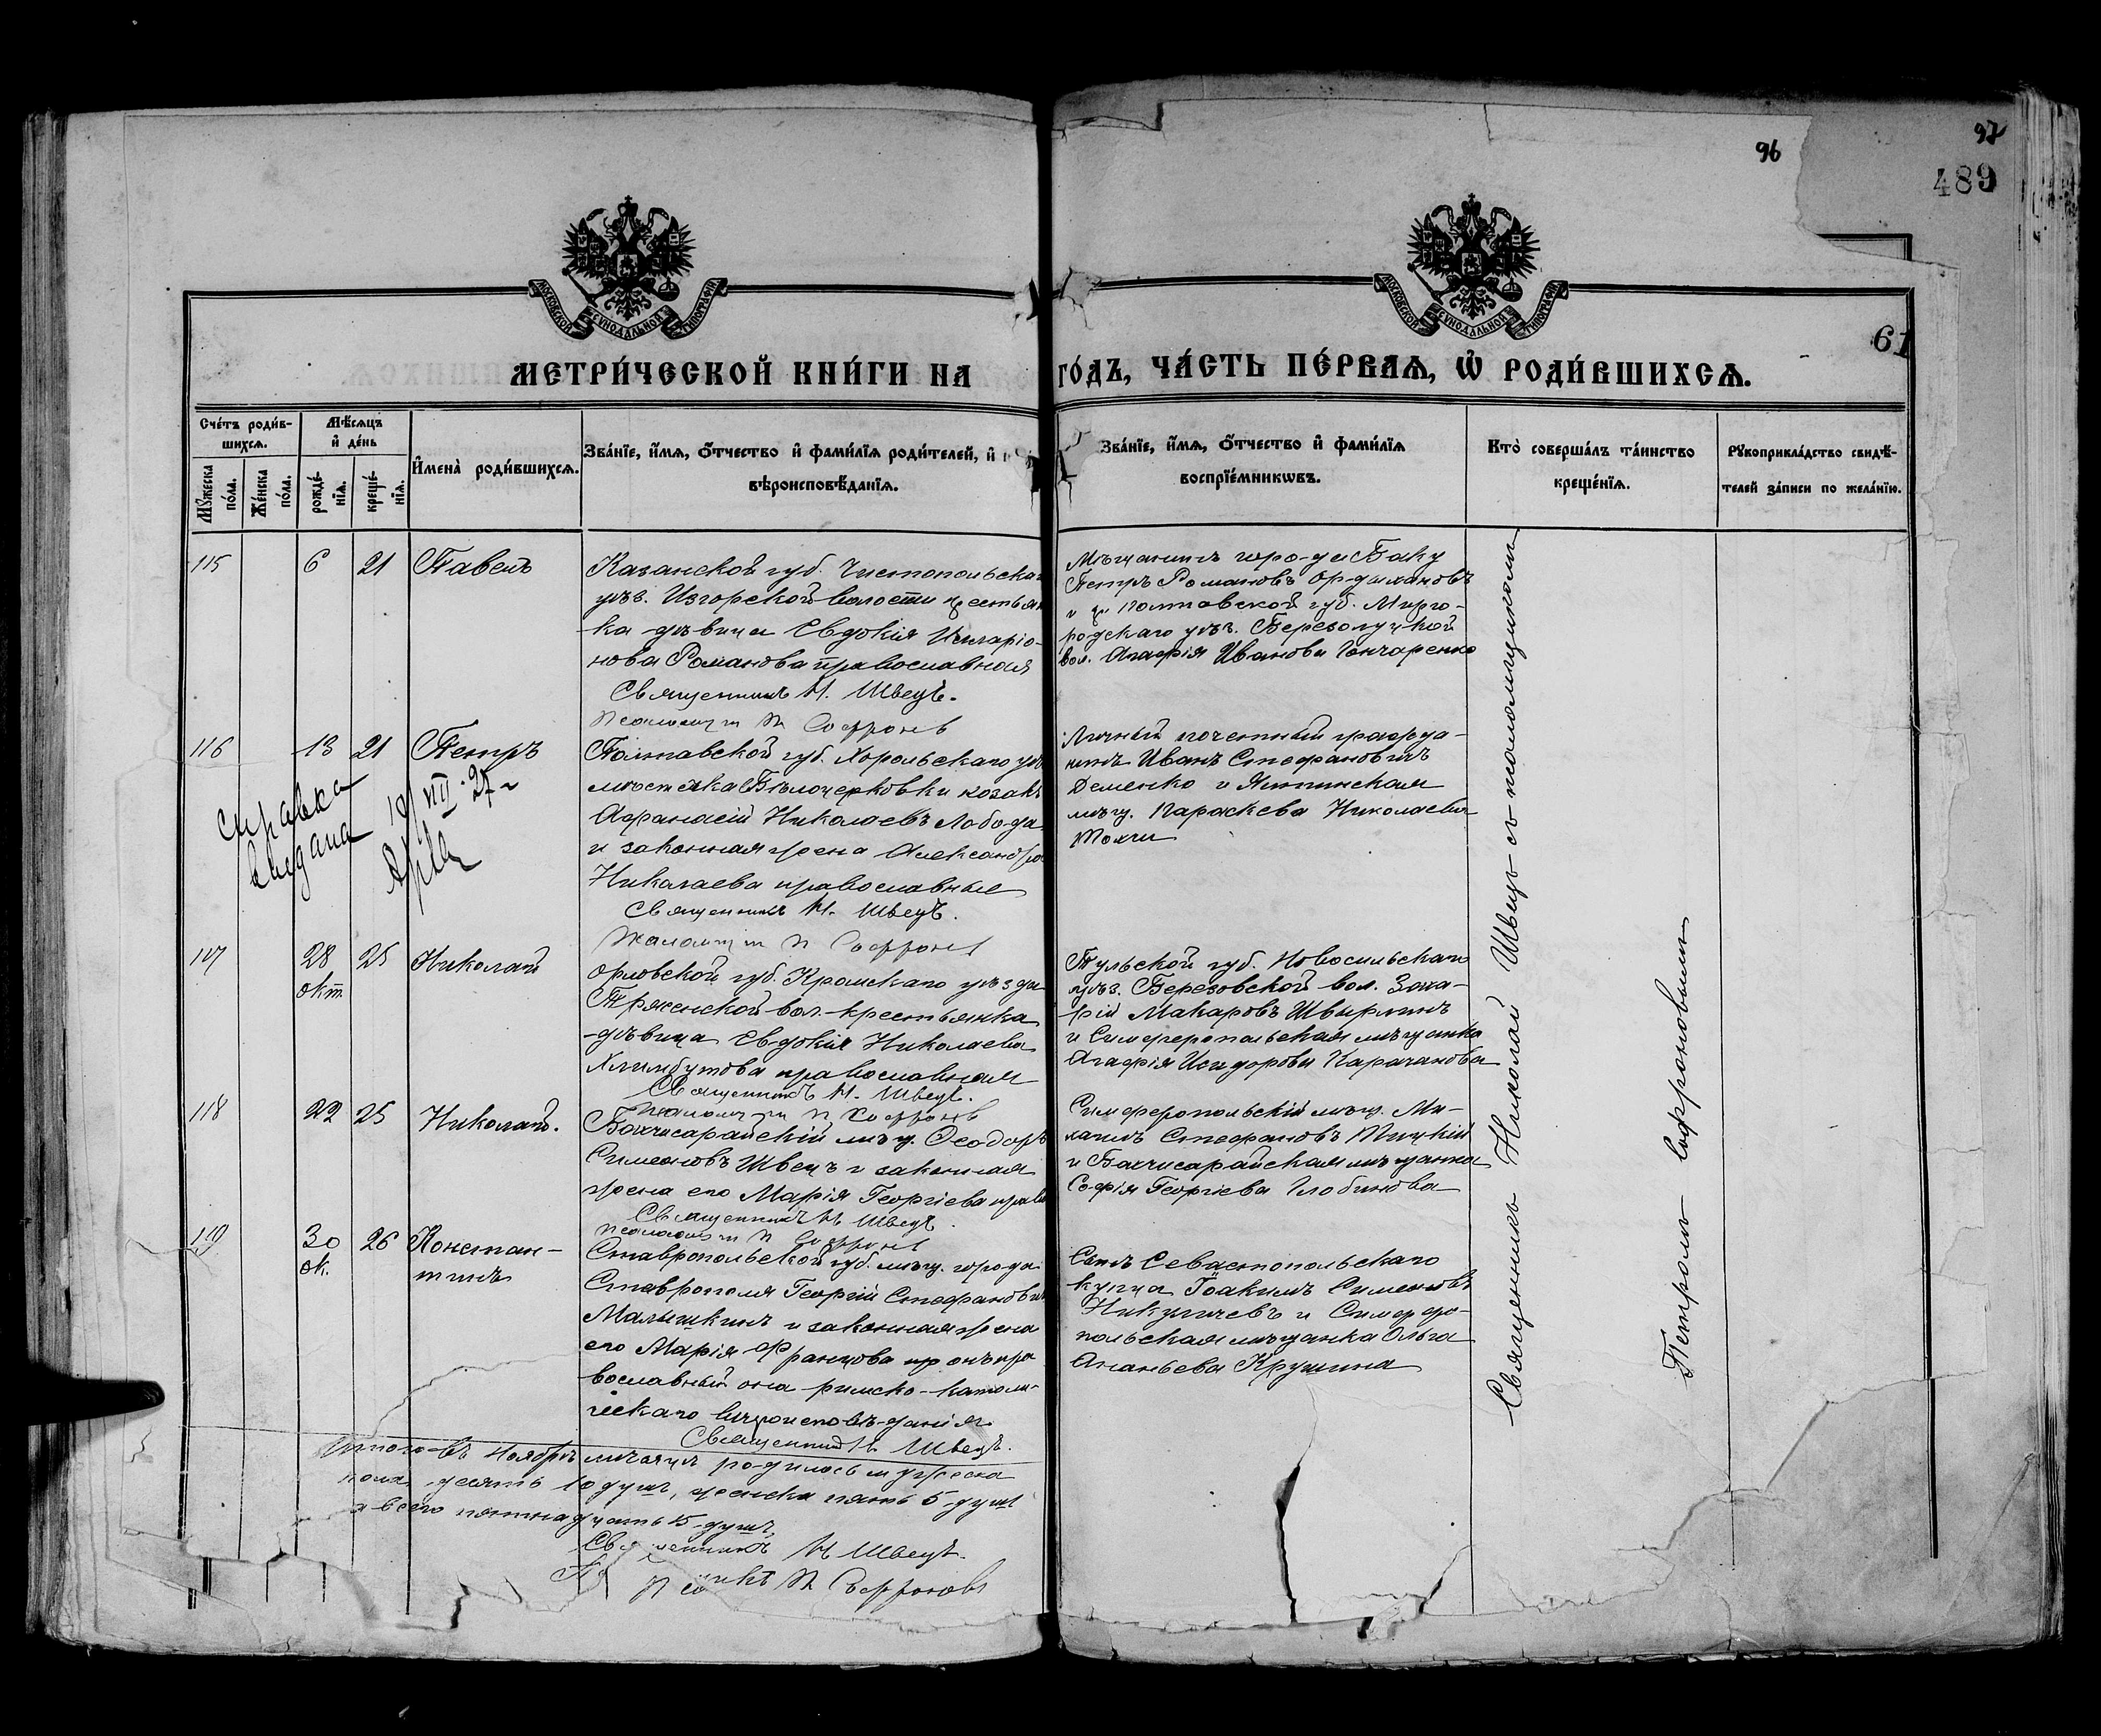 96
97
489
61
МОСКОВСКОЙ СУНОДАЛЬНОЙ ТИПОГРАФІИ
МОСКОВСКОЙ СУНОДАЛЬНОЙ ТИПОГРАФІИ
МЕТРИ́ЧЕСКОЙ КНИ́ГИ НА ГО́ДЪ, ЧА́СТЬ ПЕ́РВАѦ, Ѽ РОДИ́ВШИХСѦ.
Сче́тъ роди́в-
шихсѧ.
Мꙋ́жеска по́ла.
Же́нска по́ла.
Мѣ́сѧцъ
и҆ де́нь
рожде́-
нїѧ.
креще́-
нїѧ.
И҆мена̀ роди́вшихсѧ.
Зва́нїе, и҆́мѧ, ѻ҆́тчество и҆ фами́лїѧ роди́телей, и҆
вѣроисповѣ́данїѧ.
Зва́нїе, и҆́мѧ, ѻ҆́тчество и҆ фами́лїѧ
воспрїе́мникѡвъ.
Кто̀ соверша́лъ та́инство
креще́нїѧ.
Рꙋкоприкла́дство свидѣ́-
телей за́писи по жела́нїю.
115 6 21 Павелъ
Казанской губ. Чистопольскаго
уѣз. Изгорской волости крестьян-
ка дѣвица Евдокія Иларіо-
нова Романова православная
Священникъ Н. Швецъ.
Псаломщ П Софронов
Мѣщанинъ города Баку
Петръ Романовъ
и Полтавской губ. Мирго-
родскаго уѣз. Березолуцкой
вол. Агафія Иванова Гончаренко
116 13 21 Петръ
справка
выдана 19/VII 27
Полтавской губ. Хорольскаго уѣз
мѣстечка Бѣлоцерковки козакъ
Афанасій Николаевъ Лобода
и законная жена Александра
Николаева православные
Священникъ Н. Швецъ.
Псаломщ П Софронов
Личный почетный гражда-
нинъ Иванъ Стефановичъ
Деменко и Ялтинская
мѣщ. Параскева Николаева
117 28 25 Николай
окт.
Орловской губ. Кромскаго уѣзда
вол. крестьянка
дѣвица Евдокія Николаева
православная
Священникъ Н. Швецъ.
Псаломщ П Софронов
Тульской губ. Новосильскаго
уѣз. Березовской вол. Заха-
рій Макаровъ
и Симферопольская мѣщанка
Агафія Исидорова Карачанова
118 22 25 Николай.
Бахчисарайскій мѣщ. Ѳеодоръ
Симеоновъ Швецъ и законная
жена его Марія Георгіева прав
Священникъ Н Швецъ.
Псаломщ П Софронов
Симферопольскій мѣщ. Ми-
хаилъ Стефановъ
и Бахчисарайская мѣщанка
Софія Георгіева Глобинова
119 30 26 Констан-
ок. тинъ
Ставропольской губ. мѣщ. города
Ставрополя Георгій Стефановъ
Малышкинъ и законная жена
его Марія Францова онъ пра
вославный она римско-католи-
ческаго вѣроисповѣданія
Священникъ Н Швецъ.
Сынъ Севастопольскаго
купца Іоакимъ Симеоновъ
Никуличевъ и Симферо-
польская мѣщанка Ольга
Ананьева Крушина
Итого въ Ноябрѣ мѣсяцѣ родилось мужеска
пола десять 10 душъ, женска пять 5 душъ
а всего пятнадцать 15 душъ
Священникъ Н Швецъ.
П Софроновъ
Священникъ Николай Швецъ съ псаломщикомъ
Петромъ Софроновымъ